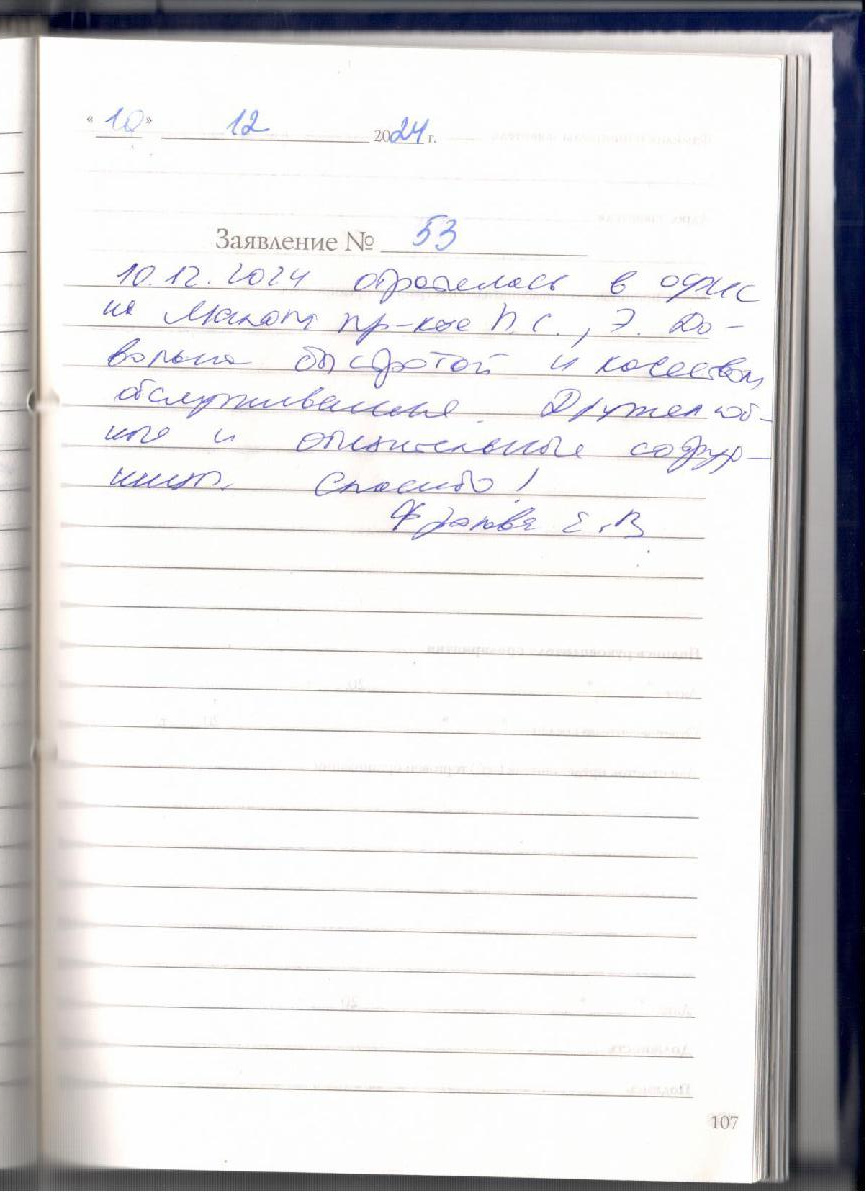 « 10 » 12 2024 г.
Заявление № 53
10.12.2024 обратилась в офис
на пр-кте П.С., Э. До-
вольна быстротой и качеством
обслуживания. Дружелюб-
ные и внимательные сотруд-
ники. Спасибо!
Е.В
107